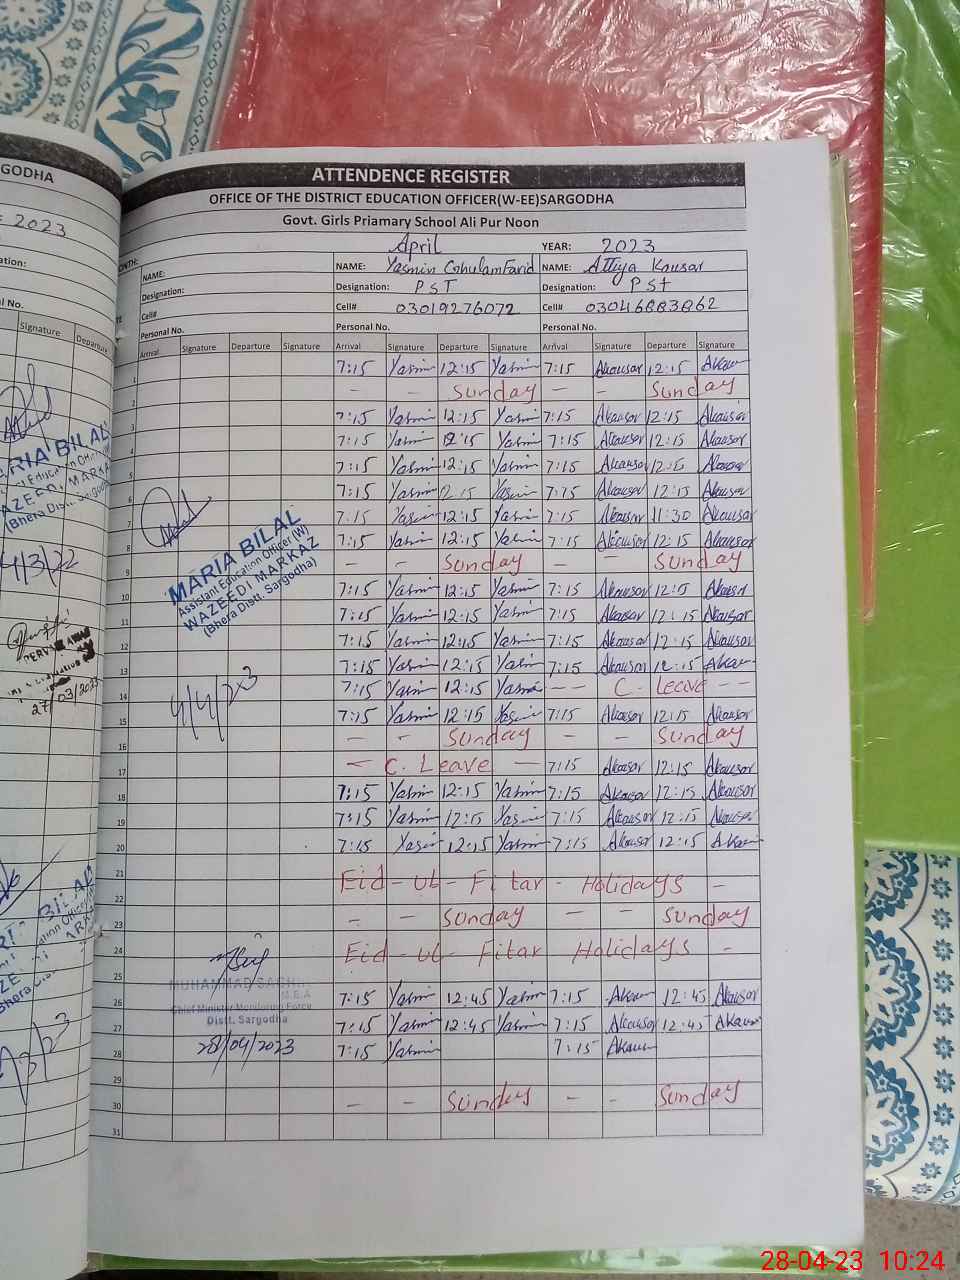 ATTENDENCE REGISTER
OFFICE OF THE DISTRICT EDUCATION OFFICER(W-EE)SARGODHA
Govt. Girls Priamary School Ali Pur Noon
April YEAR: 2023
NAME: NAME: Yasmin Ghulam Farid NAME: Attiya Kousar
Designation: Designation: PST Designation: PST
Cell# Cell# 03019276072 Cell# 03046883862
Personal No. Personal No. Personal No.
Arrival Signature Departure Signature Arrival Signature Departure Signature Arrival Signature Departure Signature
1 7:15 Yasmin 12:15 Yasmin 7:15 Akousar 12:15 Akousar
2 – Sunday – Sunday
3 7:15 Yasmin 12:15 Yasmin 7:15 Akousar 12:15 Akousar
4 7:15 Yasmin 12:15 Yasmin 7:15 Akousar 12:15 Akousar
5 7:15 Yasmin 12:15 Yasmin 7:15 Akousar 12:15 Akousar
6 7:15 Yasmin 12:15 Yasmin 7:15 Akousar 12:15 Akousar
7 7:15 Yasmin 12:15 Yasmin 7:15 Akousar 11:30 Akousar
8 7:15 Yasmin 12:15 Yasmin 7:15 Akousar 12:15 Akousar
9 – – Sunday – – Sunday
10 7:15 Yasmin 12:15 Yasmin 7:15 Akousar 12:15 Akousar
11 7:15 Yasmin 12:15 Yasmin 7:15 Akousar 12:15 Akousar
12 7:15 Yasmin 12:15 Yasmin 7:15 Akousar 12:15 Akousar
13 7:15 Yasmin 12:15 Yasmin 7:15 Akousar 12:15 Akousar
14 7:15 Yasmin 12:15 Yasmin – – C. Leave – –
15 7:15 Yasmin 12:15 Yasmin 7:15 Akousar 12:15 Akousar
16 – – Sunday – – Sunday
17 – C. Leave – 7:15 Akousar 12:15 Akousar
18 7:15 Yasmin 12:15 Yasmin 7:15 Akousar 12:15 Akousar
19 7:15 Yasmin 12:15 Yasmin 7:15 Akousar 12:15 Akousar
20 7:15 Yasmin 12:15 Yasmin 7:15 Akousar 12:15 Akousar
21 Eid – ul – Fitar – Holidays –
22
23 – – Sunday – – Sunday
24 Eid – ul – Fitar Holidays –
25
26 7:15 Yasmin 12:45 Yasmin 7:15 Akousar 12:45 Akousar
27 7:15 Yasmin 12:45 Yasmin 7:15 Akousar 12:45 Akousar
28 7:15 Yasmin 7:15 Akousar
29
30 – – Sunday – – Sunday
31
MARIA BILAL
Assistant Education Officer (W)
WAZEEDI MARKAZ
(Bhera Distt. Sargodha)
4/4/23
MUHAMMAD
M.E.A
Chief Minister Monitoring Force
Distt. Sargodha
28/04/2023
GODHA
2023
ation:
l No.
Signature
Departure
ARIA BILAL
AZEEDI MARK
(Bhera Distt. Sargod
4/3/22
27/03/2023
28-04-23 10:24